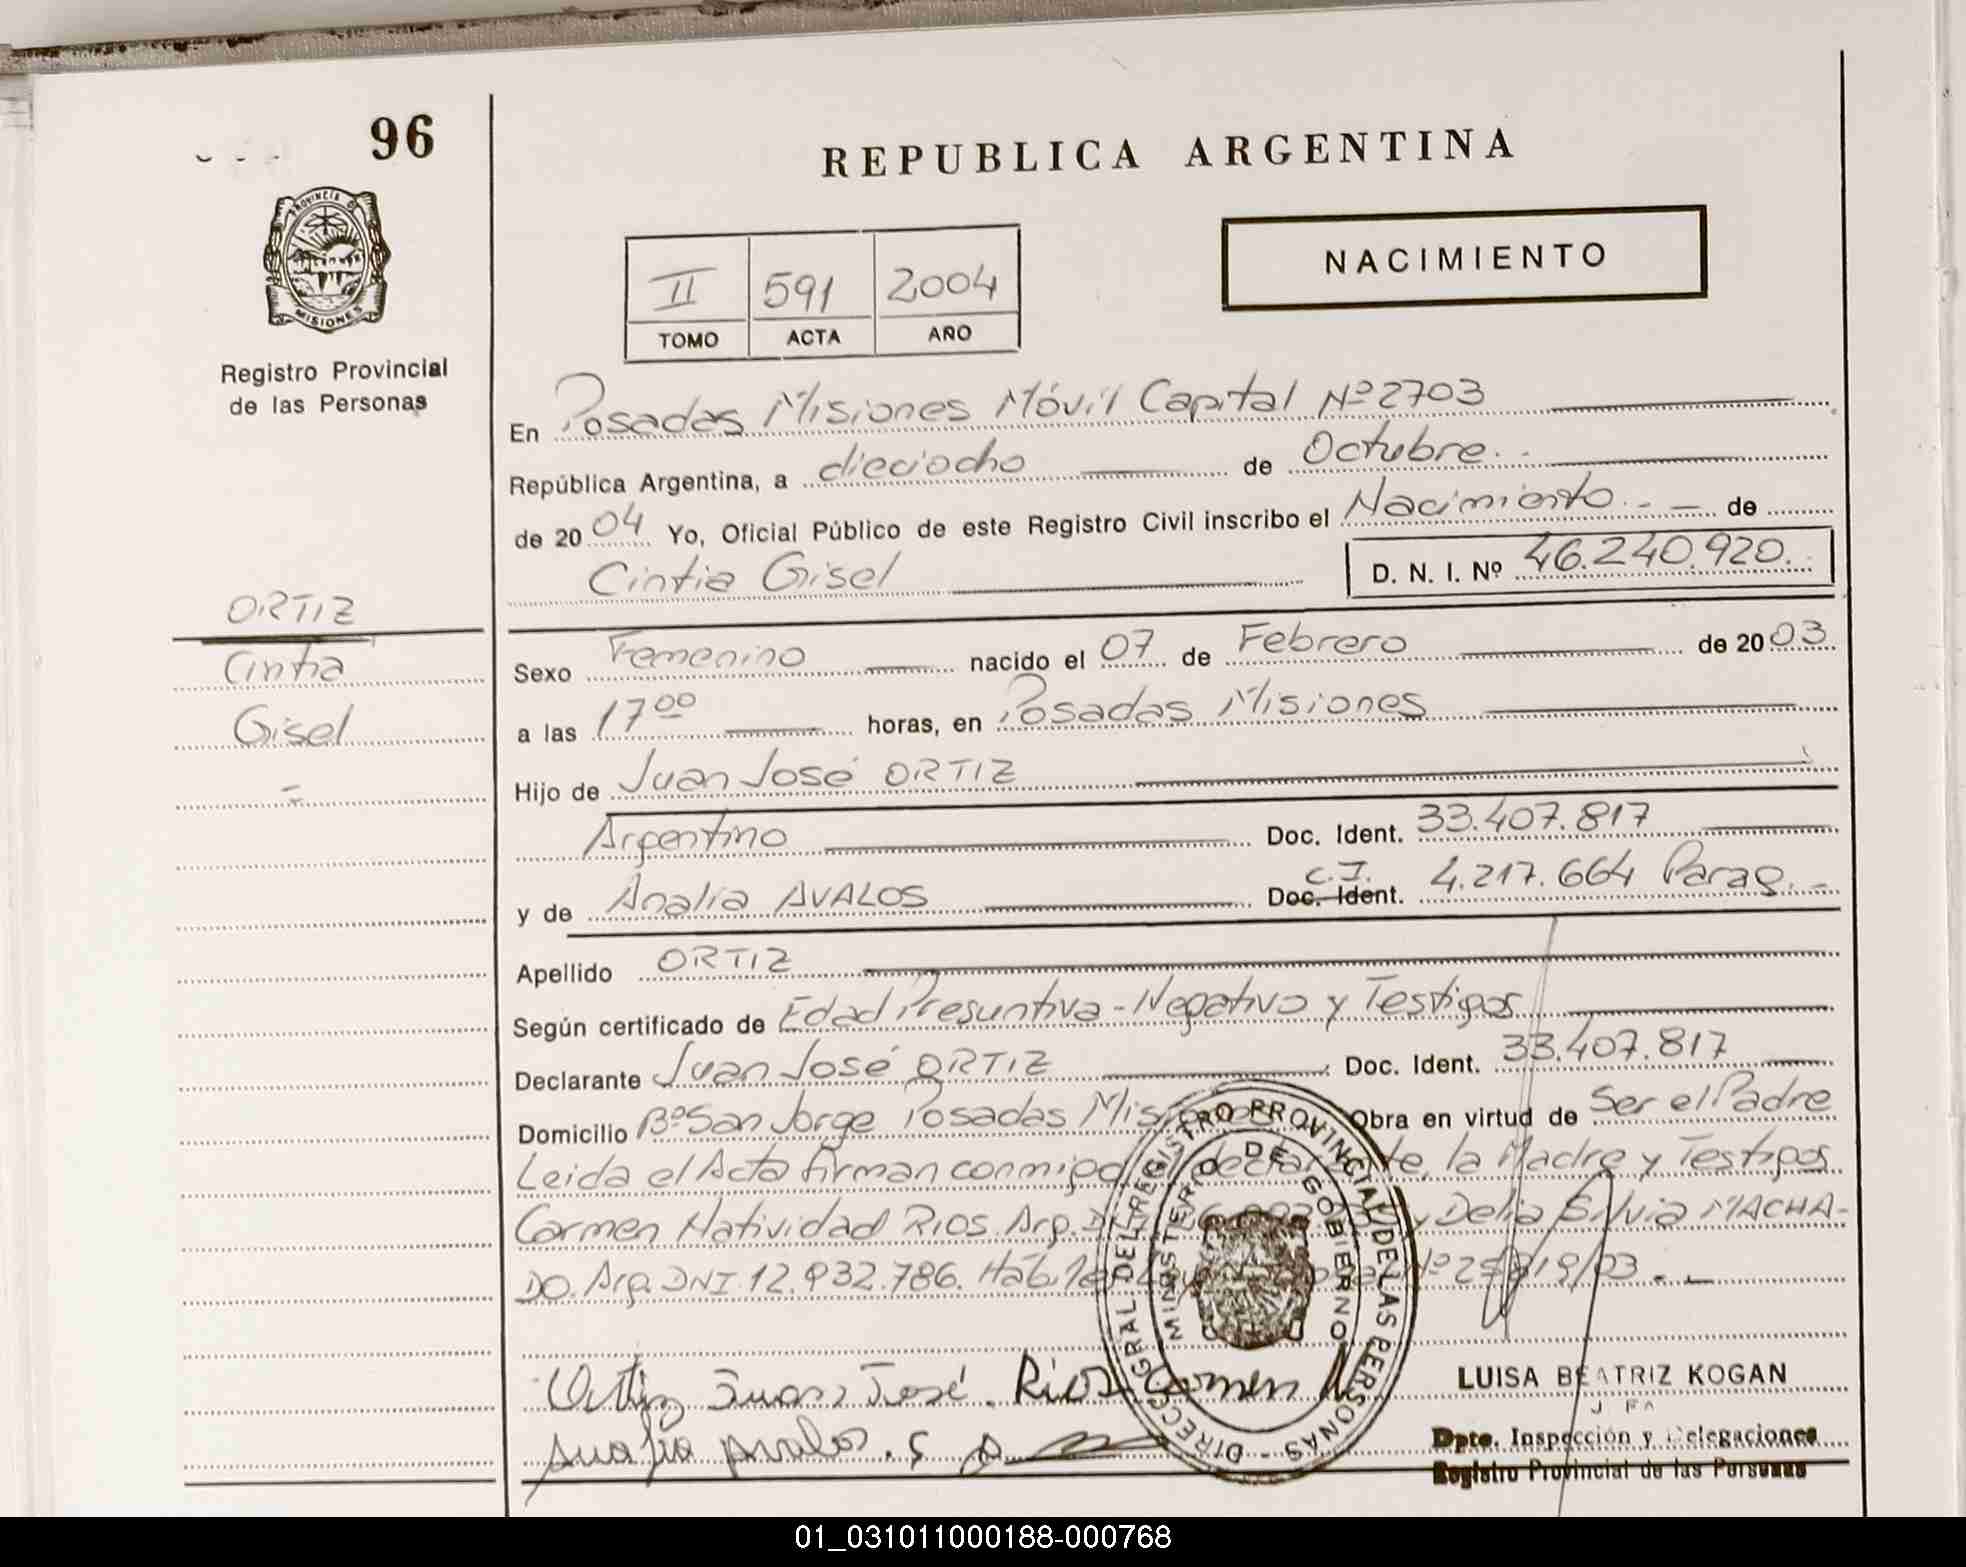 96
REPUBLICA ARGENTINA
PROVINCIA DE
MISIONES
Registro Provincial
de las Personas
II 591 2004
TOMO ACTA AÑO
NACIMIENTO
En Posadas Misiones Móvil Capital Nº 2703
República Argentina, a dieciocho de Octubre
de 2004 Yo, Oficial Público de este Registro Civil inscribo el Nacimiento de
Cintia Gisel D. N. I. Nº 46.240.920.
ORTIZ
Cintia
Gisel
Sexo Femenino nacido el 07 de Febrero de 2003
a las 17 00 horas, en Posadas Misiones
Hijo de Juan José ORTIZ
Argentino Doc. Ident. 33.407.817
y de Analia AVALOS Doc. Ident. C.I. 4.217.664 Parag.
Apellido ORTIZ
Según certificado de Edad Presuntiva - Negativo y Testigos
Declarante Juan José ORTIZ Doc. Ident. 33.407.817
Domicilio Bº San Jorge Posadas Obra en virtud de Ser el Padre
Leida el Acta firman conmigo la Madre y Testigos
Carmen Natividad RIOS. Arg. y Delia Silvia MACHA-
DO. Arg. DNI. 12.932.786. Hab.
DIRECC. GRAL DEL REGISTRO PROVINCIAL DE LAS PERSONAS -
MINISTERIO DE GOBIERNO
Ortiz Juan José. Rios Carmen N
Analia Avalos.
LUISA BEATRIZ KOGAN
JEFA
Dpto. Inspección y Delegaciones
Registro Provincial de las Personas
01_031011000188-000768